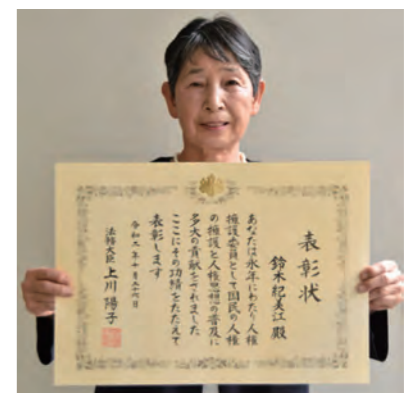 表彰状
鈴木紀美江 殿
あなたは永年にわたり人権
擁護委員として国民の人権
の擁護と人権思想の普及に
多大の貢献をされました
ここにその功績をたたえて
表彰します
令和三年十月二十六日
法務大臣 上川陽子